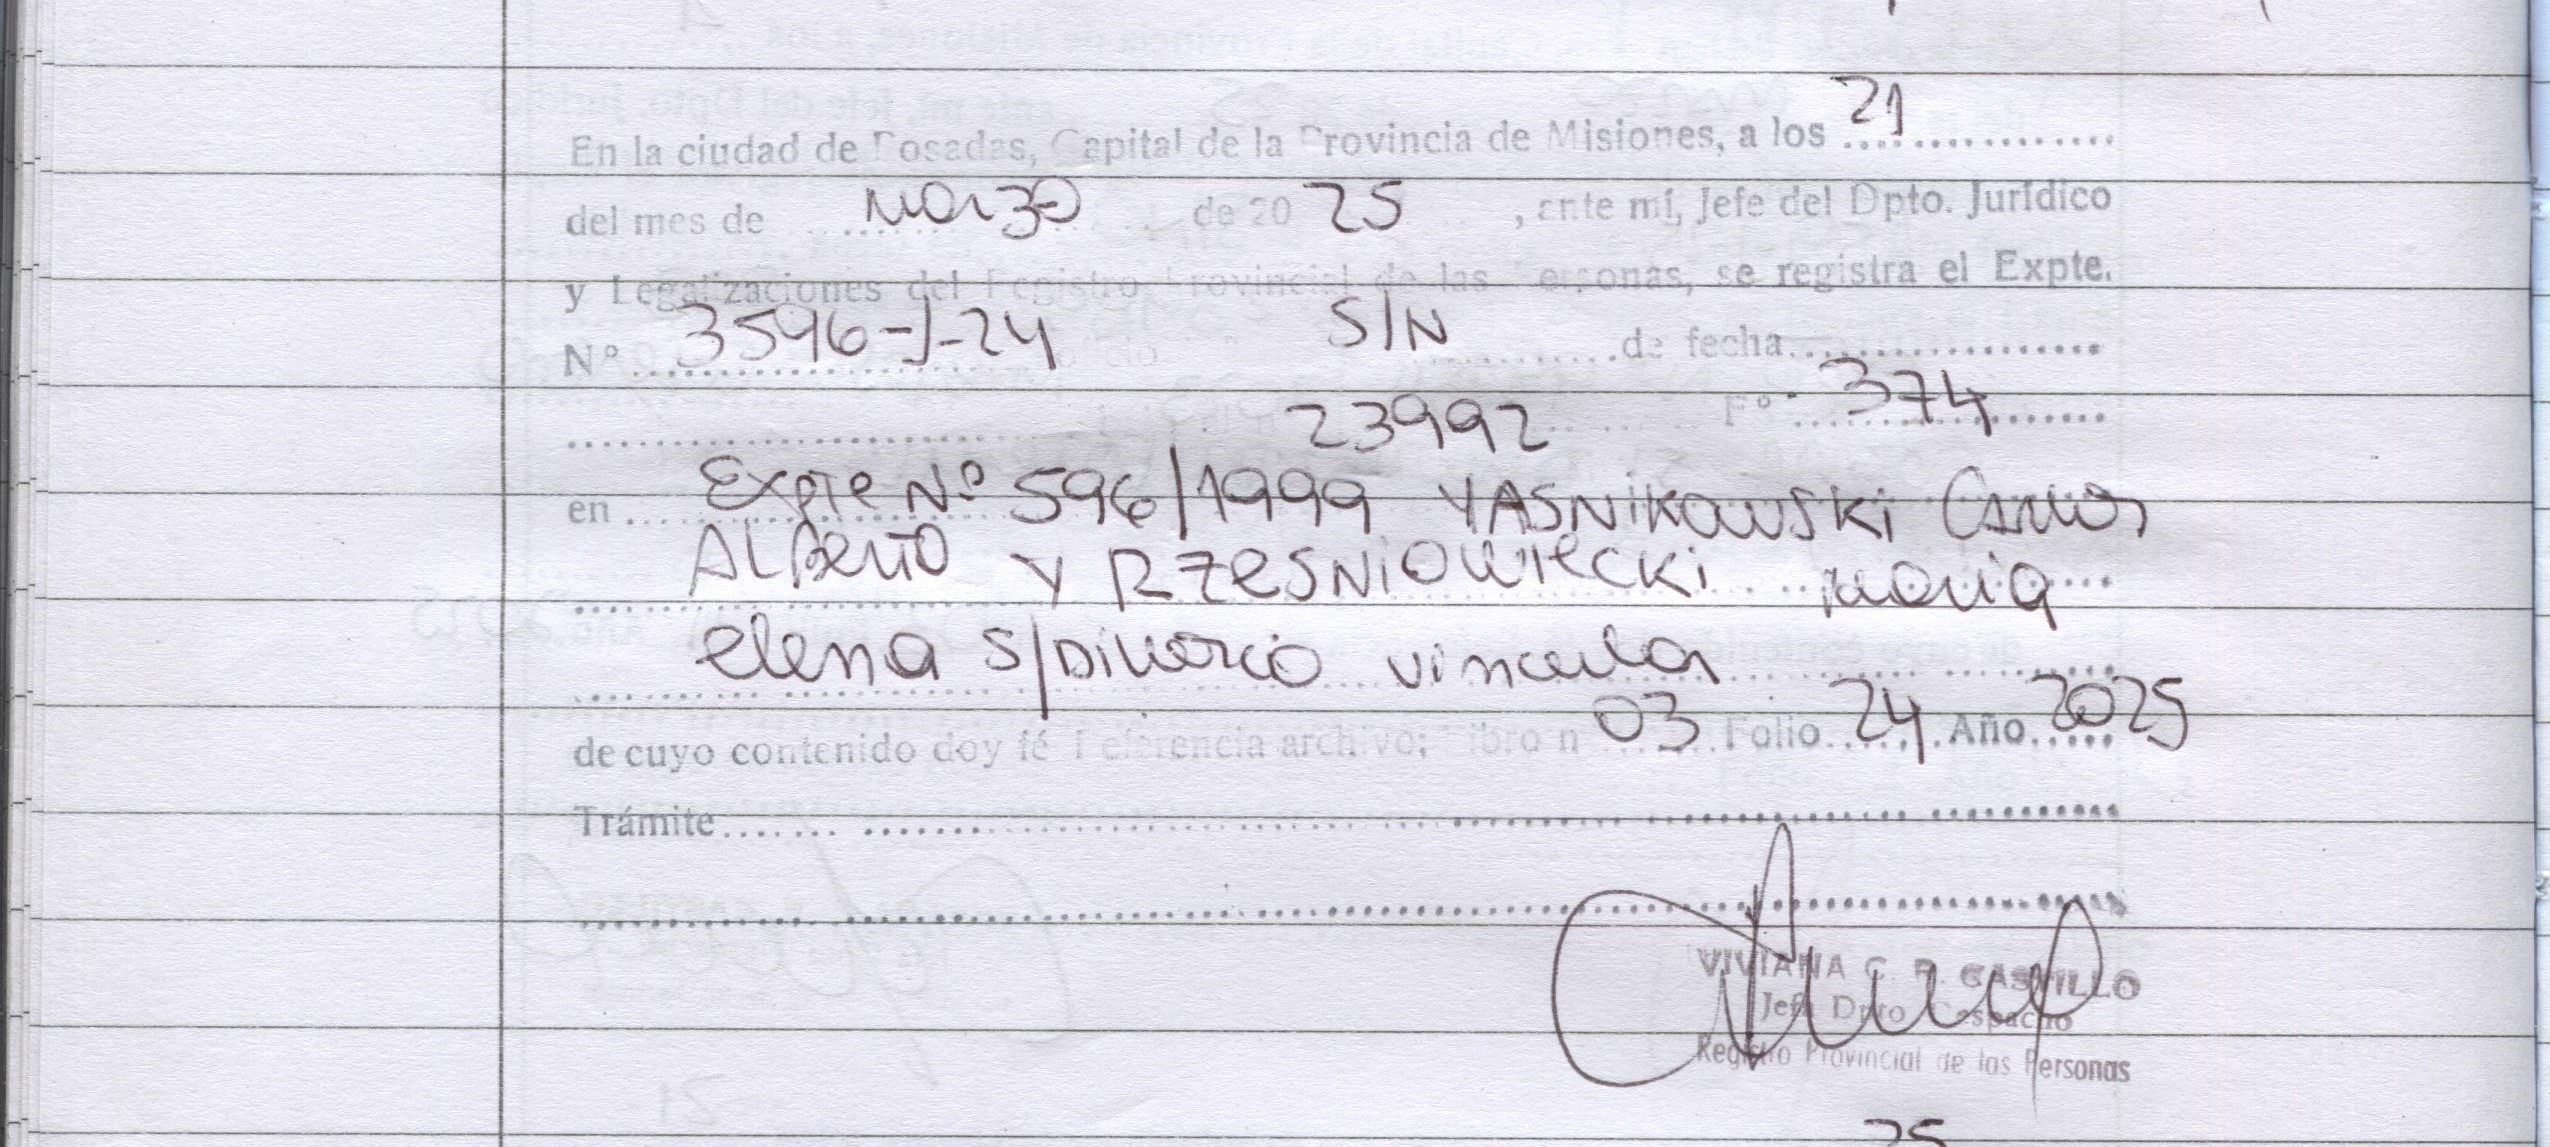 En la ciudad de Posadas, Capital de la Provincia de Misiones, a los 21
del mes de Marzo de 20 25 , ante mí, Jefe del Dpto. Jurídico
y Legalizaciones del Registro Provincial de las Personas, se registra el Expte.
N° 3596-J-24 S/N de fecha
23992 F° 374
en Expte Nº 596/1999 YASNIKOWSKI Carlos
ALBerto Y RZESNIOWIECKI Maria
elena S/Divorcio vincular
de cuyo contenido doy fé Referencia archivo; Libro n 03 Folio 24 Año 2025
Trámite
VIVIANA C. R. CASTILLO
Jefa Dpto Despacho
Registro Provincial de las Personas
25